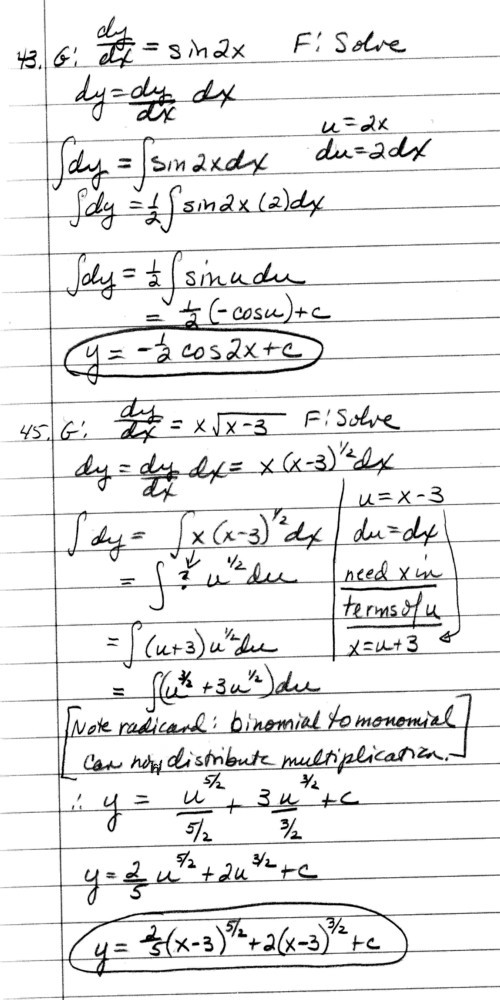 43. G: dy/dx = sin2x F: Solve
dy = dy/dx dx
u = 2x
∫dy = ∫sin2xdx du = 2dx
∫dy = 1/2 ∫sin2x(2)dx
∫dy = 1/2 ∫sinudu
= 1/2(-cosu)+c
y = -1/2 cos2x+c
45. G: dy/dx = x√(x-3) F: Solve
dy = dy/dx dx = x(x-3)^1/2 dx
u = x-3
∫dy = ∫x(x-3)^1/2 dx du = dx
= ∫ ? u^1/2 du need x in
terms of u
= ∫(u+3)u^1/2 du x = u+3
= ∫(u^3/2 + 3u^1/2)du
[Note radicand: binomial to monomial
Can now distribute multiplication.]
∴ y = u^5/2 / 5/2 + 3u^3/2 / 3/2 + c
y = 2/5 u^5/2 + 2u^3/2 + c
y = 2/5(x-3)^5/2 + 2(x-3)^3/2 + c